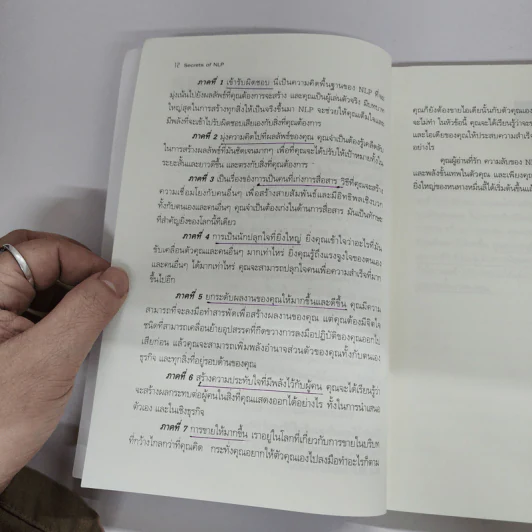 12 Secrets of NLP
ภาคที่ 1 เข้ารับผิดชอบ นี่เป็นความคิดพื้นฐานของ NLP
มุ่งเน้นไปยังผลลัพธ์ที่คุณต้องการจะสร้าง และคุณเป็นผู้เล่นตัวจริง
ใหญ่สุดในการสร้างทุกสิ่งให้เป็นจริงขึ้นมา NLP จะช่วยให้คุณเต็มใจและ
มีพลังที่จะเข้าไปรับผิดชอบเสียเองกับสิ่งที่คุณต้องการ
ภาคที่ 2 มุ่งความคิดไปที่ผลลัพธ์ของคุณ คุณจำเป็นต้องรู้เคล็ดลับ
ในการสร้างผลลัพธ์ที่มันชัดเจนมากๆ เพื่อที่คุณจะได้ปรับให้เป้าหมายทั้งใน
ระยะสั้นและยาวดีขึ้น และตรงกับสิ่งที่คุณต้องการ
ภาคที่ 3 เป็นเรื่องของการเป็นคนที่เก่งการสื่อสาร วิธีที่คุณจะสร้าง
ความเชื่อมโยงกับคนอื่นๆ เพื่อสร้างสายสัมพันธ์และมีอิทธิพลเชิงบวก
ทั้งกับตนเองและคนอื่นๆ คุณจำเป็นต้องเก่งในด้านการสื่อสาร มันเป็นทักษะ
ที่สำคัญยิ่งของโลกนี้ทีเดียว
ภาคที่ 4 การเป็นนักปลุกใจที่ยิ่งใหญ่ ยิ่งคุณเข้าใจว่าอะไรที่มัน
ขับเคลื่อนตัวคุณและคนอื่นๆ มากเท่าไหร่ ยิ่งคุณรู้ถึงแรงจูงใจของตนเอง
และคนอื่นๆ ได้มากเท่าไหร่ คุณจะสามารถปลุกใจคนเพื่อความสำเร็จที่มาก
ขึ้นไปอีก
ภาคที่ 5 ยกระดับผลงานของคุณให้มากขึ้นและดีขึ้น คุณมีความ
สามารถที่จะลงมือทำสารพัดเพื่อสร้างผลงานของคุณ แต่คุณต้องมีจิตใจ
ชนิดที่สามารถเคลื่อนย้ายอุปสรรคที่กีดขวางการลงมือปฏิบัติของคุณออกไป
เสียก่อน แล้วคุณจะสามารถเพิ่มพลังอำนาจส่วนตัวของคุณทั้งกับตนเอง
ธุรกิจ และทุกสิ่งที่อยู่รอบด้านของคุณ
ภาคที่ 6 สร้างความประทับใจที่มีพลังไว้กับผู้คน คุณจะได้เรียนรู้ว่า
จะสร้างผลกระทบต่อผู้คนในสิ่งที่คุณแสดงออกได้อย่างไร ทั้งในการนำเสนอ
ตัวเอง และในเชิงธุรกิจ
ภาคที่ 7 การขายให้มากขึ้น เราอยู่ในโลกที่เกี่ยวกับการขายในบริบท
ที่กว้างไกลกว่าที่คุณคิด กระทั่งคุณอยากให้ตัวคุณเองไปลงมือทำอะไรก็ตาม
คุณก็ยังต้องขายไอเดียนั้นกับตัวคุณเอง
จะไม่ทำ ในหัวข้อนี้ คุณจะได้เรียนรู้ว่า
และไอเดียของคุณให้ประสบความสำเร็จ
อย่างไร
คุณผู้อ่านที่รัก ความลับของ
และพลังขั้นเทพในตัวคุณ และเพียงคุณ
ยิ่งใหญ่ของหนทางหมื่นลี้ได้เริ่มต้นขึ้นแล้ว